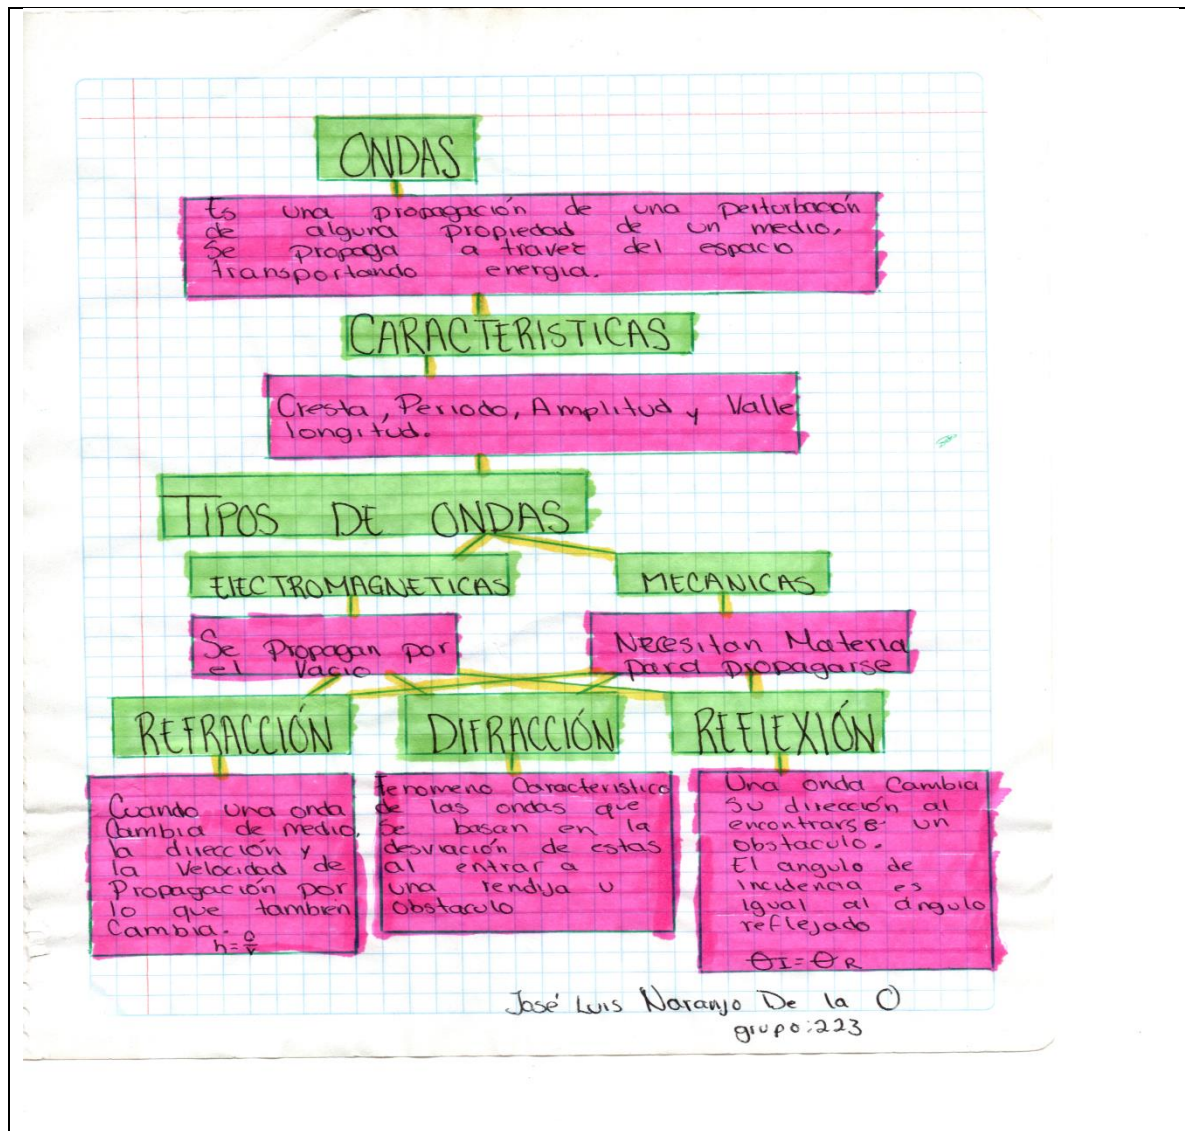 ONDAS
Es una propagación de una perturbación
de alguna propiedad de un medio.
Se propaga a travez del espacio
transportando energia.
CARACTERISTICAS
Cresta, Periodo, Amplitud y Valle
longitud.
TIPOS DE ONDAS
ELECTROMAGNETICAS
MECANICAS
Se Propagan por
el Vacio
Necesitan Materia
para propagarse
REFRACCIÓN
DIFRACCIÓN
REFLEXIÓN
Cuando una onda
Cambia de medio,
la dirección y
la Velocidad de
Propagación por
lo que también
Cambia.
fenomeno Caracteristico
de las ondas que
se basan en la
desviación de estas
al entrar a
una rendija u
obstaculo
Una onda Cambia
su dirección al
encontrarse un
obstaculo.
El angulo de
incidencia es
igual al ángulo
reflejado
θI=θR
José Luis Naranjo De la O
grupo:223